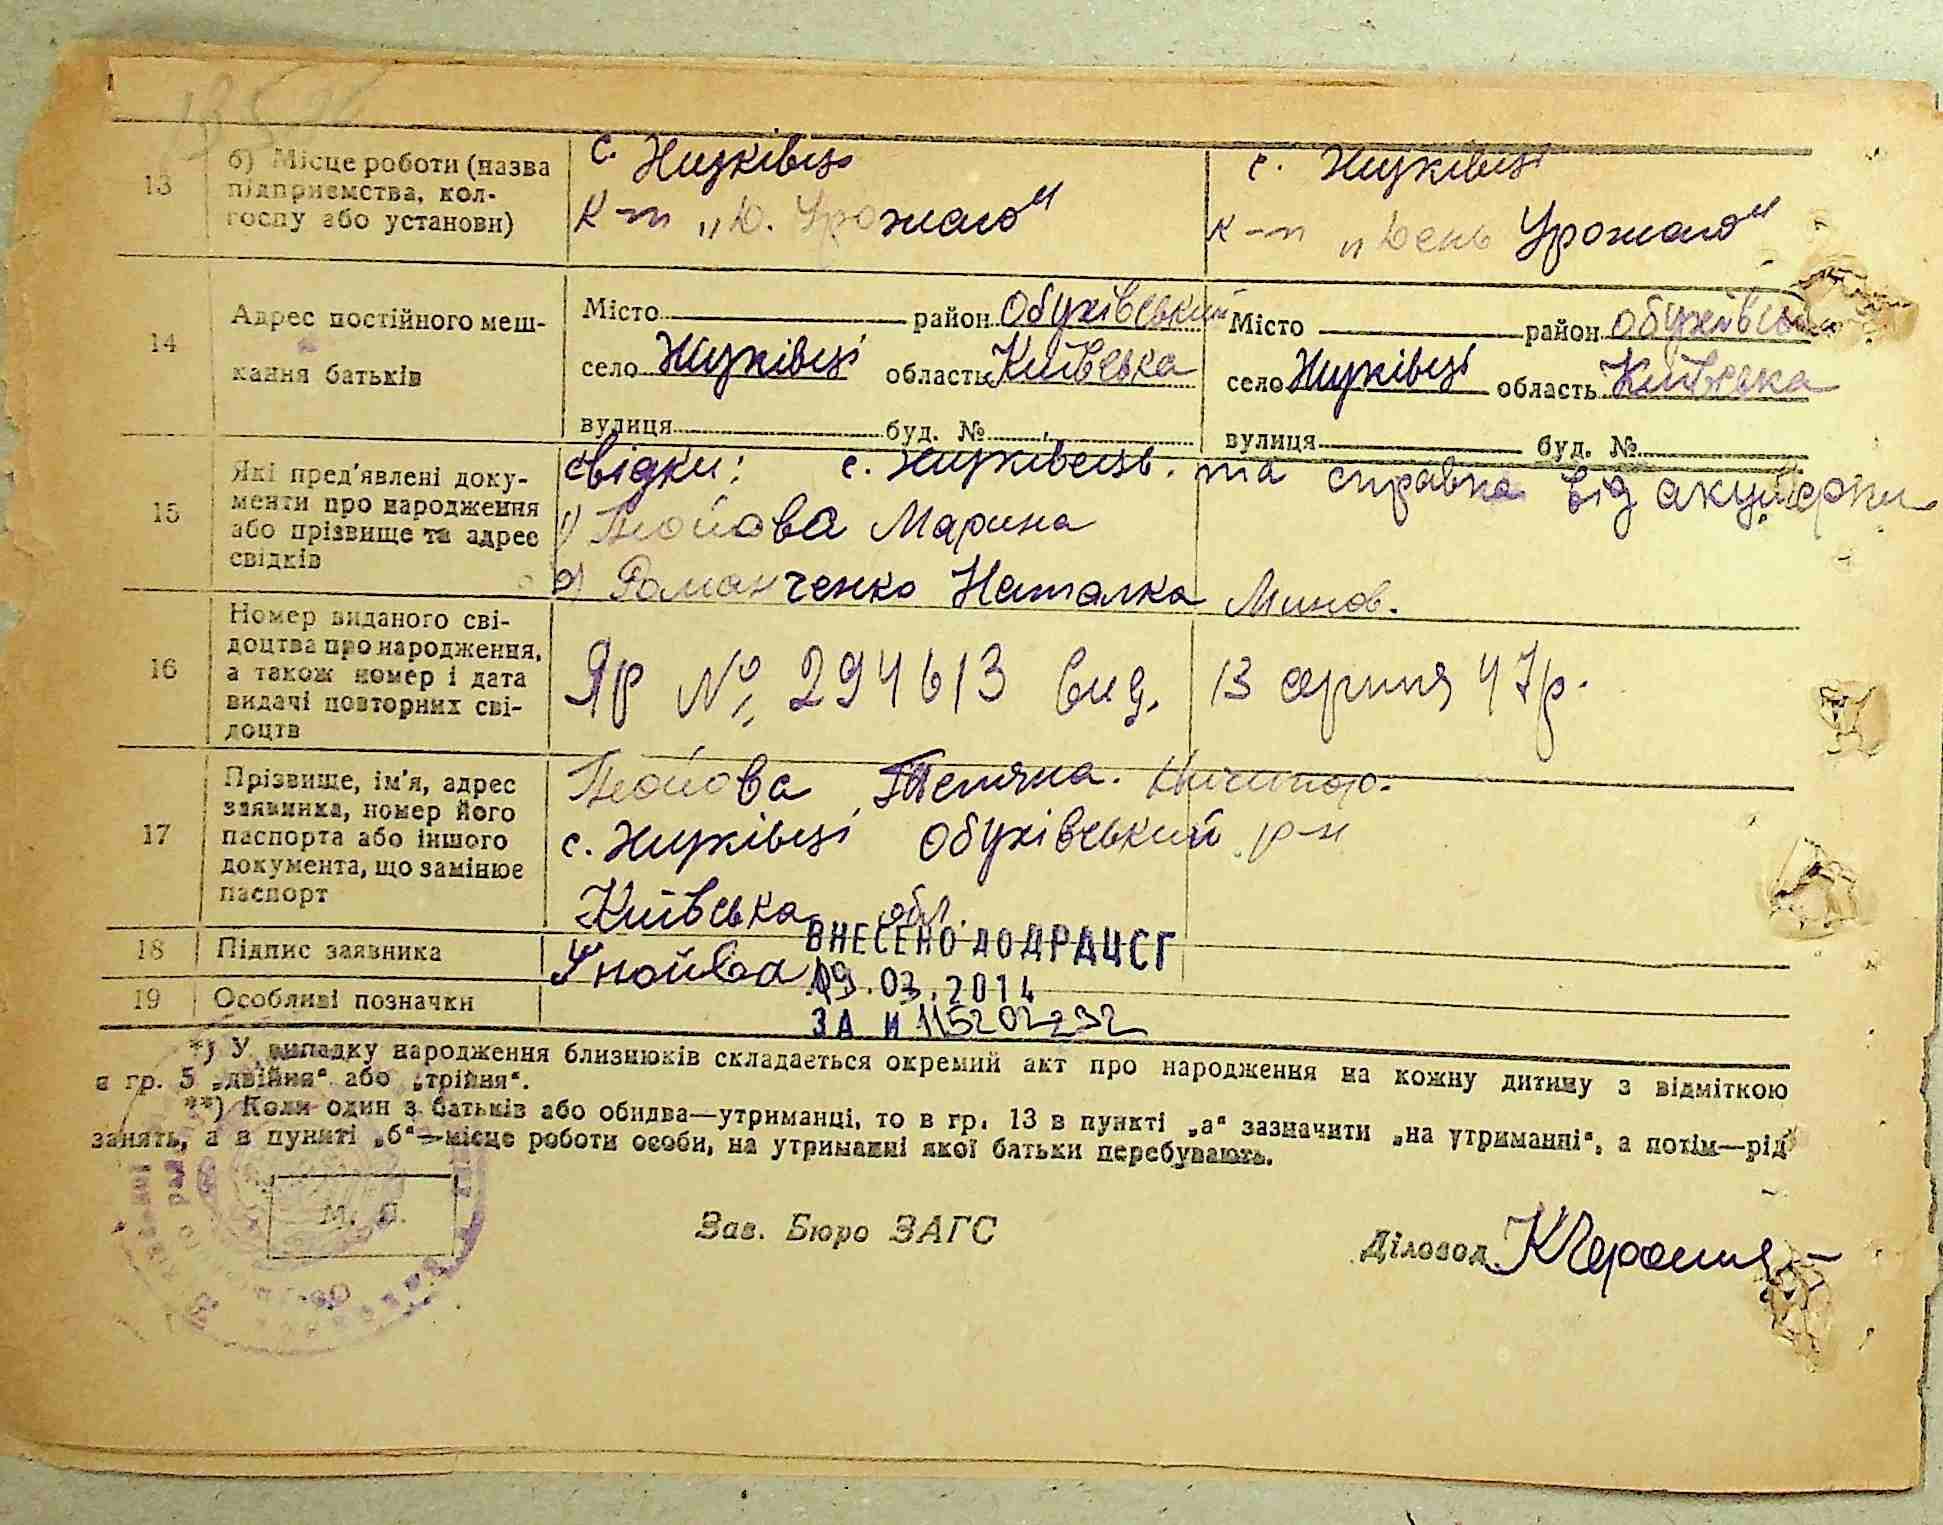 13 б) Місце роботи (назва підприємства, колгоспу або установи)
с. Жуківці
к-п „Д. Урожаю"
с. Жуківці
к-п „День Урожаю"
14 Адрес постійного мешкання батьків
Місто район Обухівський
село Жуківці область Київська
вулиця буд. №
Місто район Обухівсь
село Жуківці область Київська
вулиця буд. №
15 Які пред'явлені документи про народження або прізвище та адрес свідків
свідки: с. Жуківець. та справка від акушерки
1) Марина
2) Романченко Наталка
16 Номер виданого свідоцтва про народження, а також номер і дата видачі повторних свідоцтв
Яр № 294613 вид. 13 серпня 47р.
17 Прізвище, ім'я, адрес заявника, номер його паспорта або іншого документа, що замінює паспорт
с. Жуківці Обухівський р-н
Київська обл.
18 Підпис заявника
ВНЕСЕНО ДО ДРАЦСГ
19.03.2014
19 Особливі позначки
ЗА № 115202232
*) У випадку народження близнюків складається окремий акт про народження на кожну дитину з відміткою
в гр. 5 „двійня" або „трійня".
**) Коли один з батьків або обидва—утриманці, то в гр. 13 в пункті „а" зазначити „на утриманні", а потім—рід
занять, а в пункті „б"—місце роботи особи, на утриманні якої батьки перебувають.
М. П.
Зав. Бюро ЗАГС
Діловод